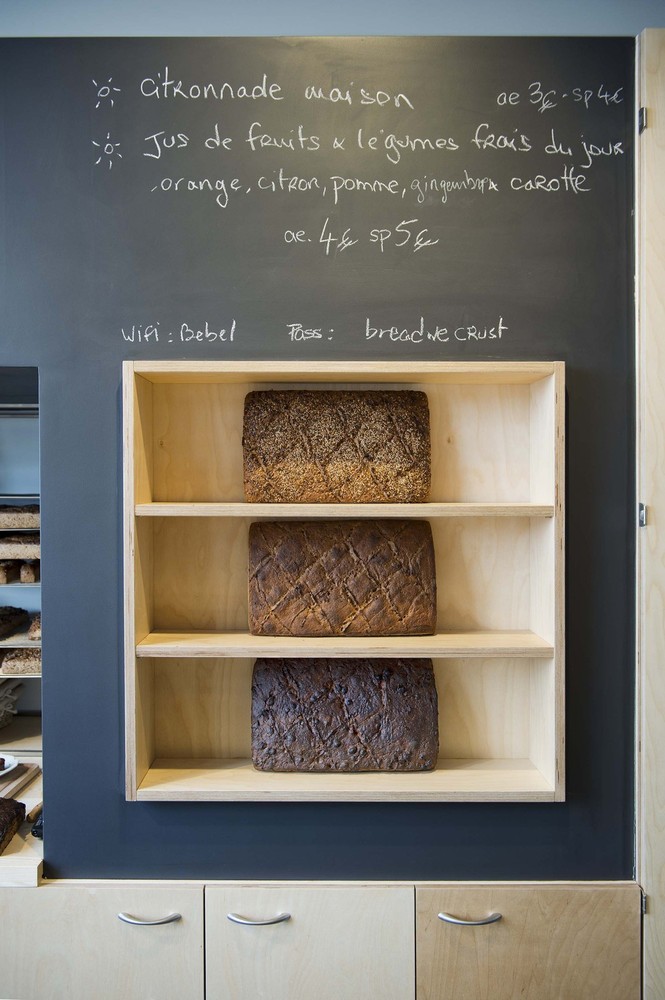 citronnade maison ae 3€ - sp 4€
Jus de fruits & légumes frais du jour
orange, citron, pomme, gingembre & carotte
ae. 4€ sp 5€
Wifi : Bebel Pass : breadwecrust